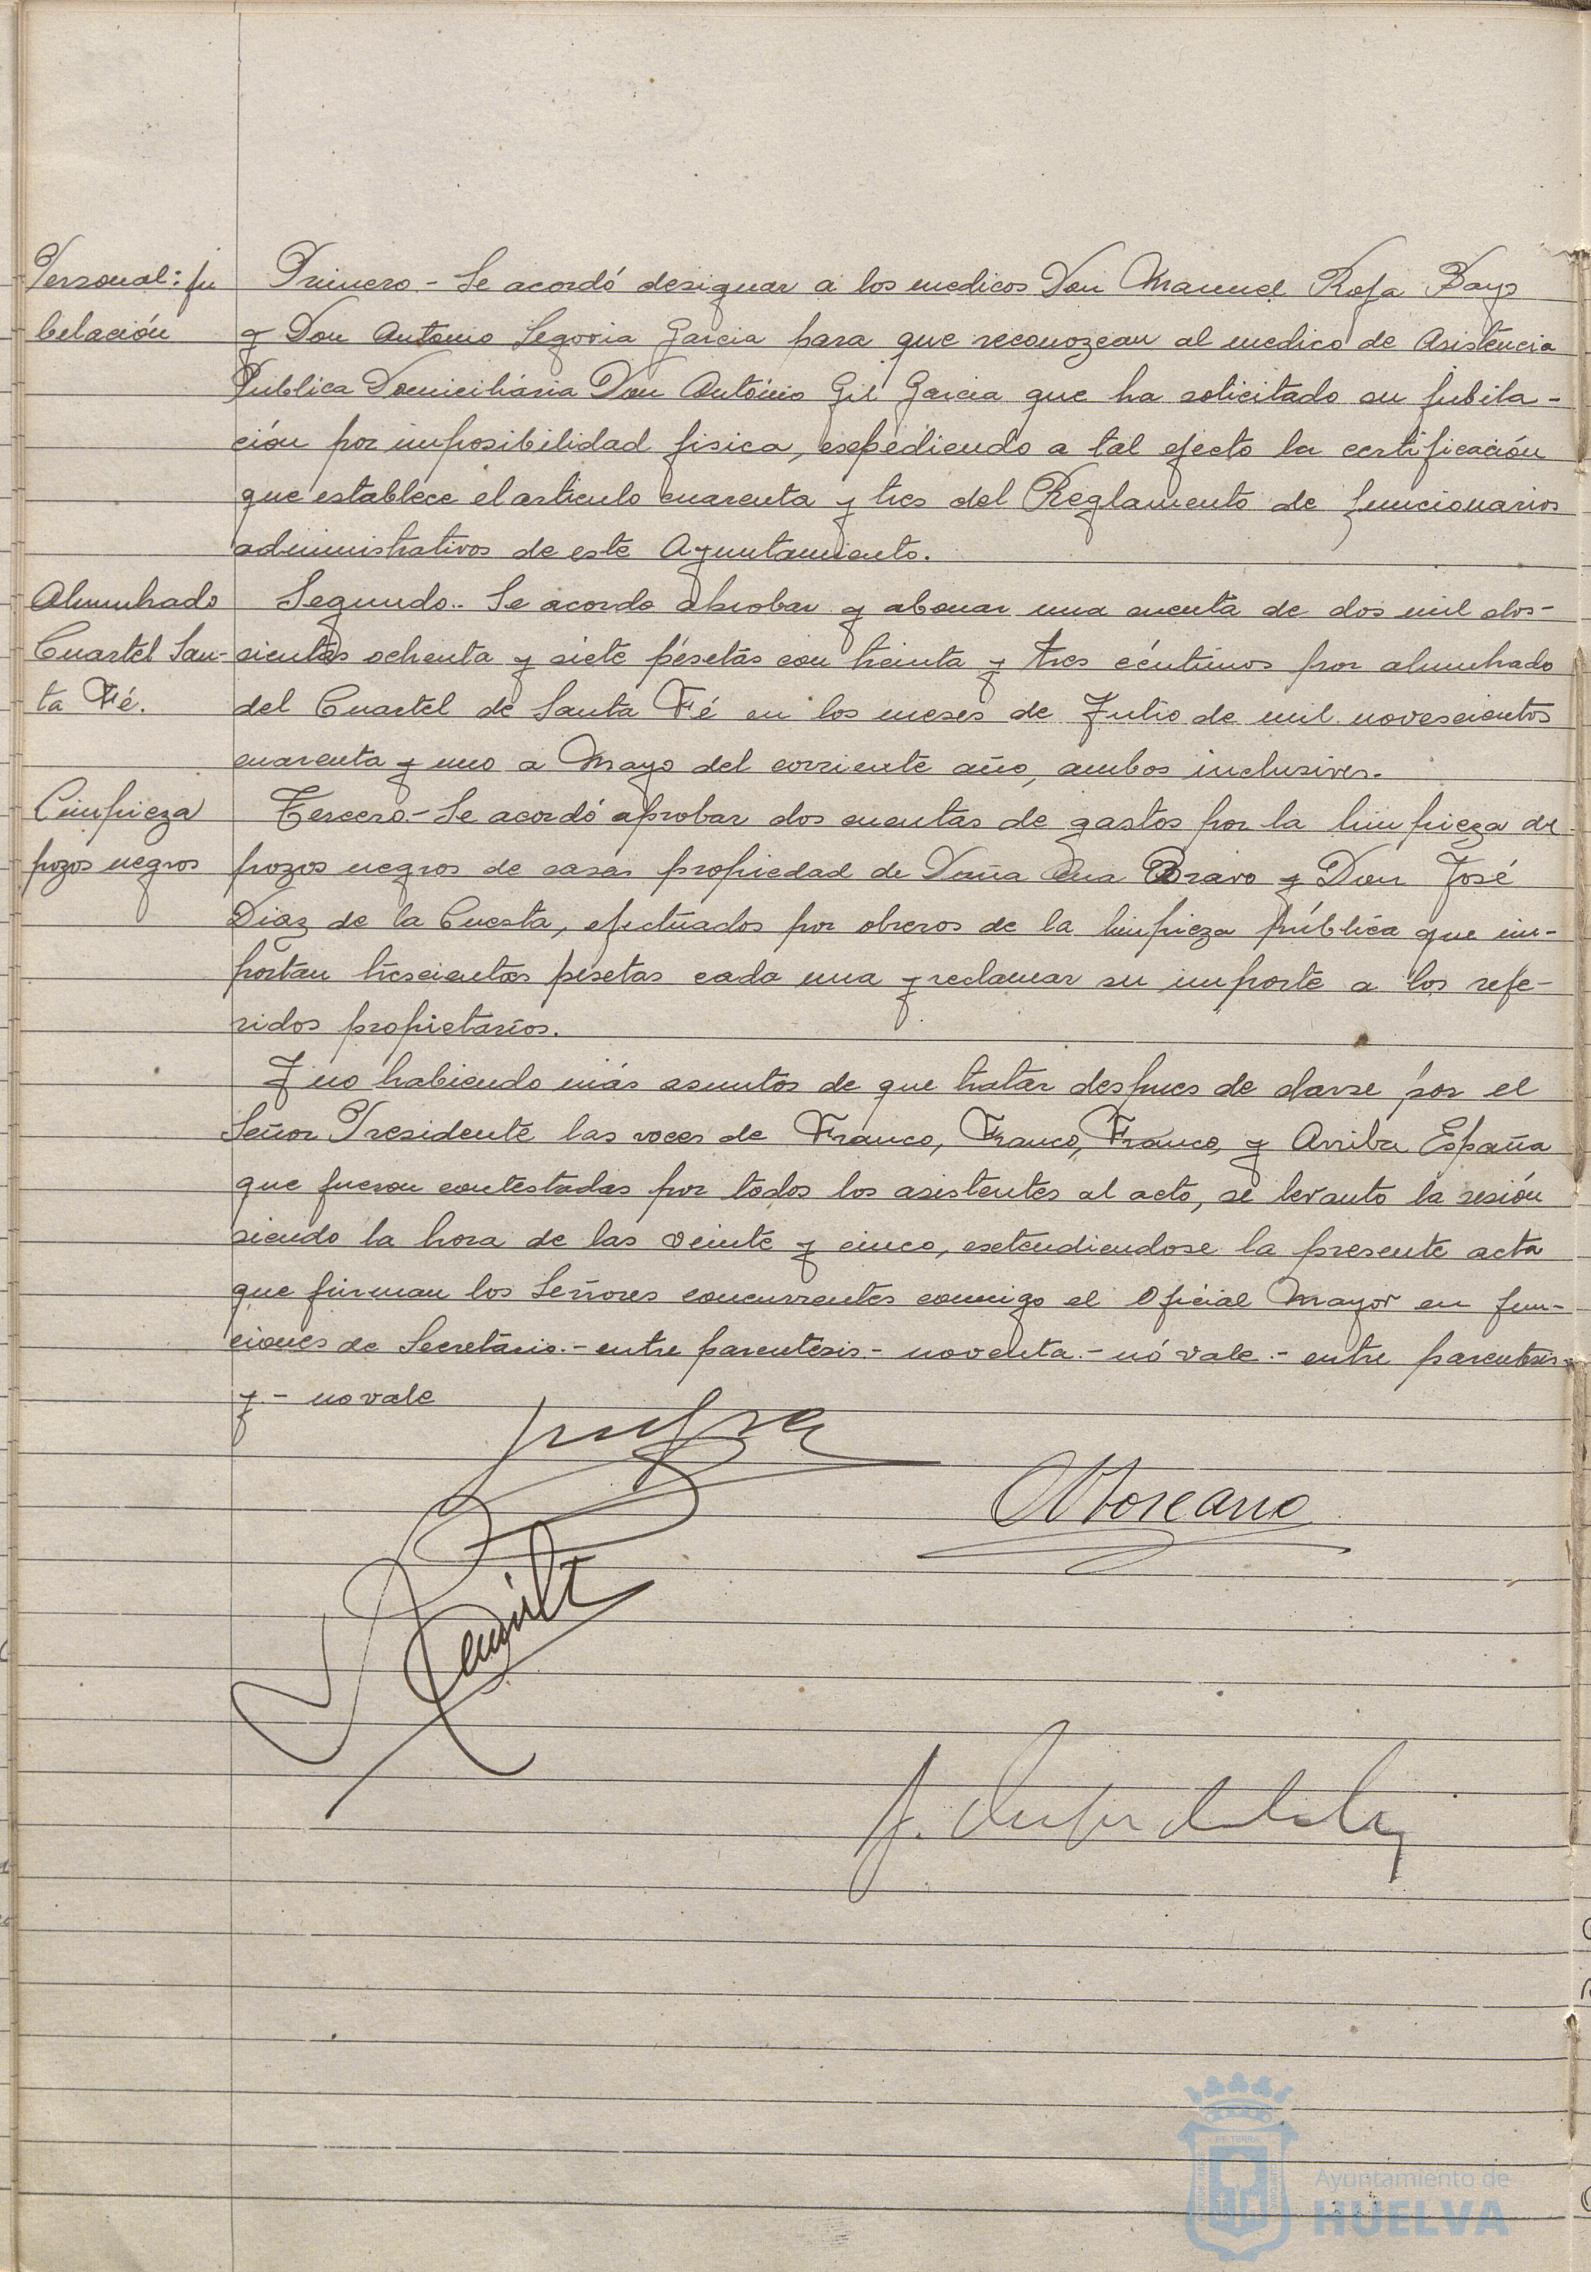 Personal: ju
belación
Primero.- Se acordó designar a los medicos Don Manuel Rofa Bayo
y Don Antonio Segovia Garcia para que reconozcan al medico de Asistencia
Publica Domiciliaria Don Antonio Gil Garcia que ha solicitado su jubila-
ción por imposibilidad fisica, espediendo a tal efecto la certificación
que establece el articulo cuarenta y tres del Reglamento de funcionarios
administrativos de este Ayuntamiento.
Alumbrado
Cuartel San-
ta Fé.
Segundo.. Se acordo aprobar y abonar una cuenta de dos mil dos-
cientas ochenta y siete pesetas con treinta y tres céntimos por alumbrado
del Cuartel de Santa Fé en los meses de Julio de mil novescientos
cuarenta y uno a Mayo del corriente año, ambos inclusives.
Limpieza
pozos negros
Tercero.- Se acordó aprobar dos cuentas de gastos por la limpieza de
pozos negros de casas propiedad de Doña Ana Bravo y Don José
Diaz de la Cuesta, efectuados por obreros de la limpieza pública que im-
portan trescientas pesetas cada una y reclamar su importe a los refe-
ridos propietarios.
Y no habiendo más asuntos de que tratar despues de darse por el
Señor Presidente las voces de Franco, Franco, Franco, y Arriba España
que fueron contestadas por todos los asistentes al acto, se levanto la sesión
siendo la hora de las veinte y cinco, extendiendose la presente acta
que firman los Señores concurrentes conmigo el Oficial Mayor en fun-
ciones de Secretario.- entre parentesis.- noventa.- nó vale.- entre parentesis.-
y.- no vale
Ayuntamiento de
HUELVA